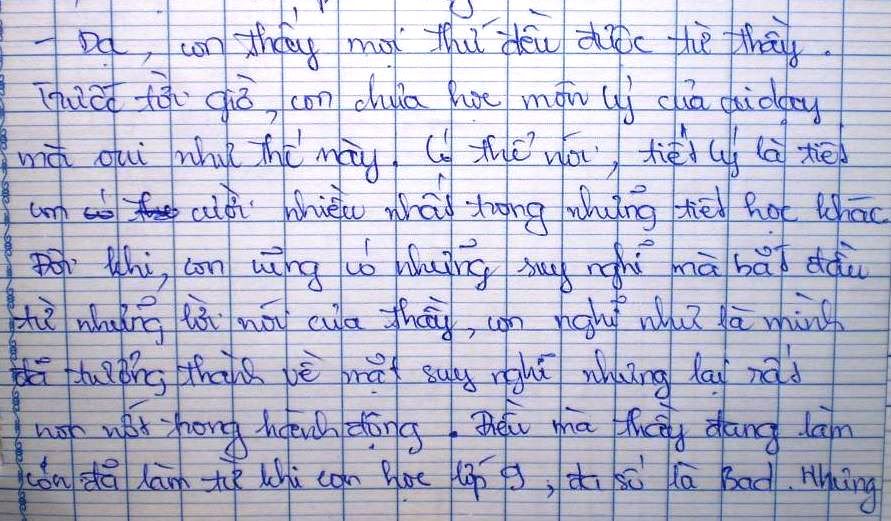 - Dạ, con thấy mọi thứ đều được từ thầy.
Trước tới giờ, con chưa học môn lý của ai dạy
mà vui như thế này. Có thể nói, tiết lý là tiết
con cười nhiều nhất trong những tiết học khác
Đôi khi, con cũng có những suy nghĩ mà bắt đầu
từ những lời nói của thầy, con nghĩ như là mình
đã trưởng thành về mặt suy nghĩ nhưng lại rất
non nớt trong hành động. Điều mà thầy đang làm
con đã làm từ khi con học lớp 9, đa số là Bad. Nhưng